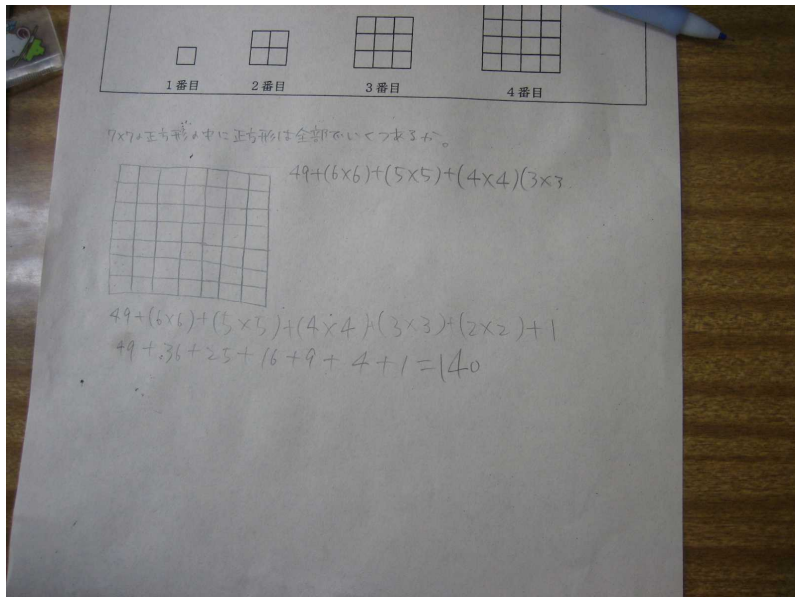 1番目 2番目 3番目 4番目
7×7の正方形の中に正方形は全部でいくつあるか。
49+(6×6)+(5×5)+(4×4)(3×3
49+(6×6)+(5×5)+(4×4)+(3×3)+(2×2)+1
49+36+25+16+9+4+1=140